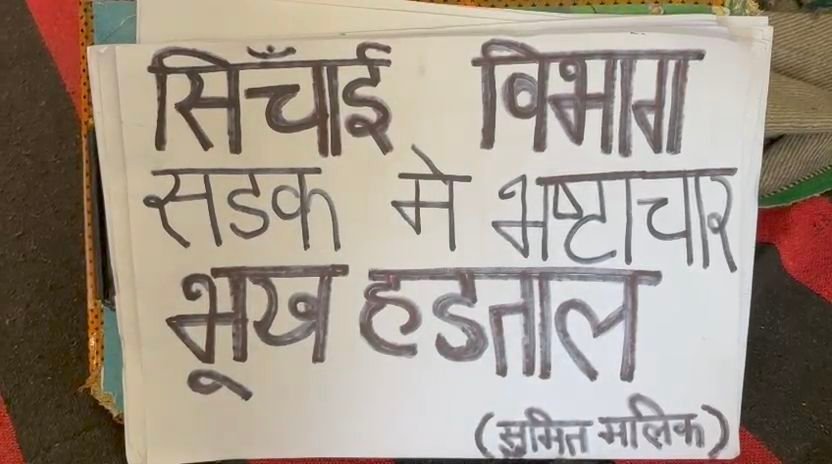 सिँचाई विभाग
सडक मे भष्टाचार
भूख हडताल
(सुमित मलिक)